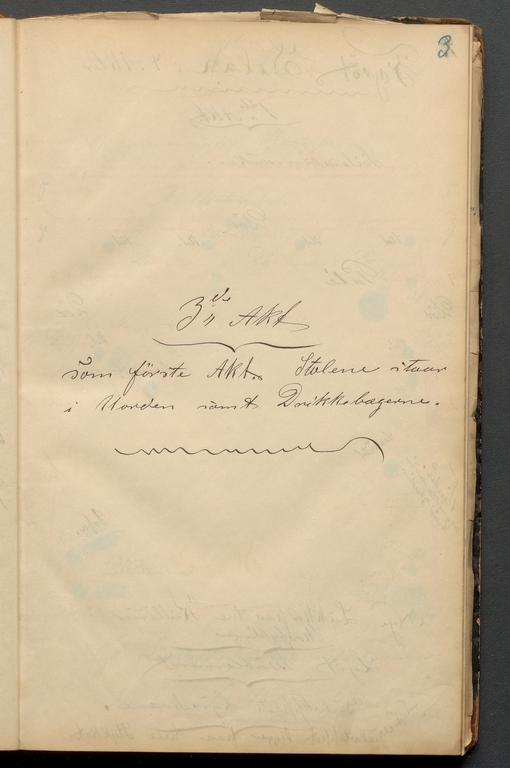 3
3die Akt
som förste Akt. Stolene staar
i Uorden samt Drikkebægerne.